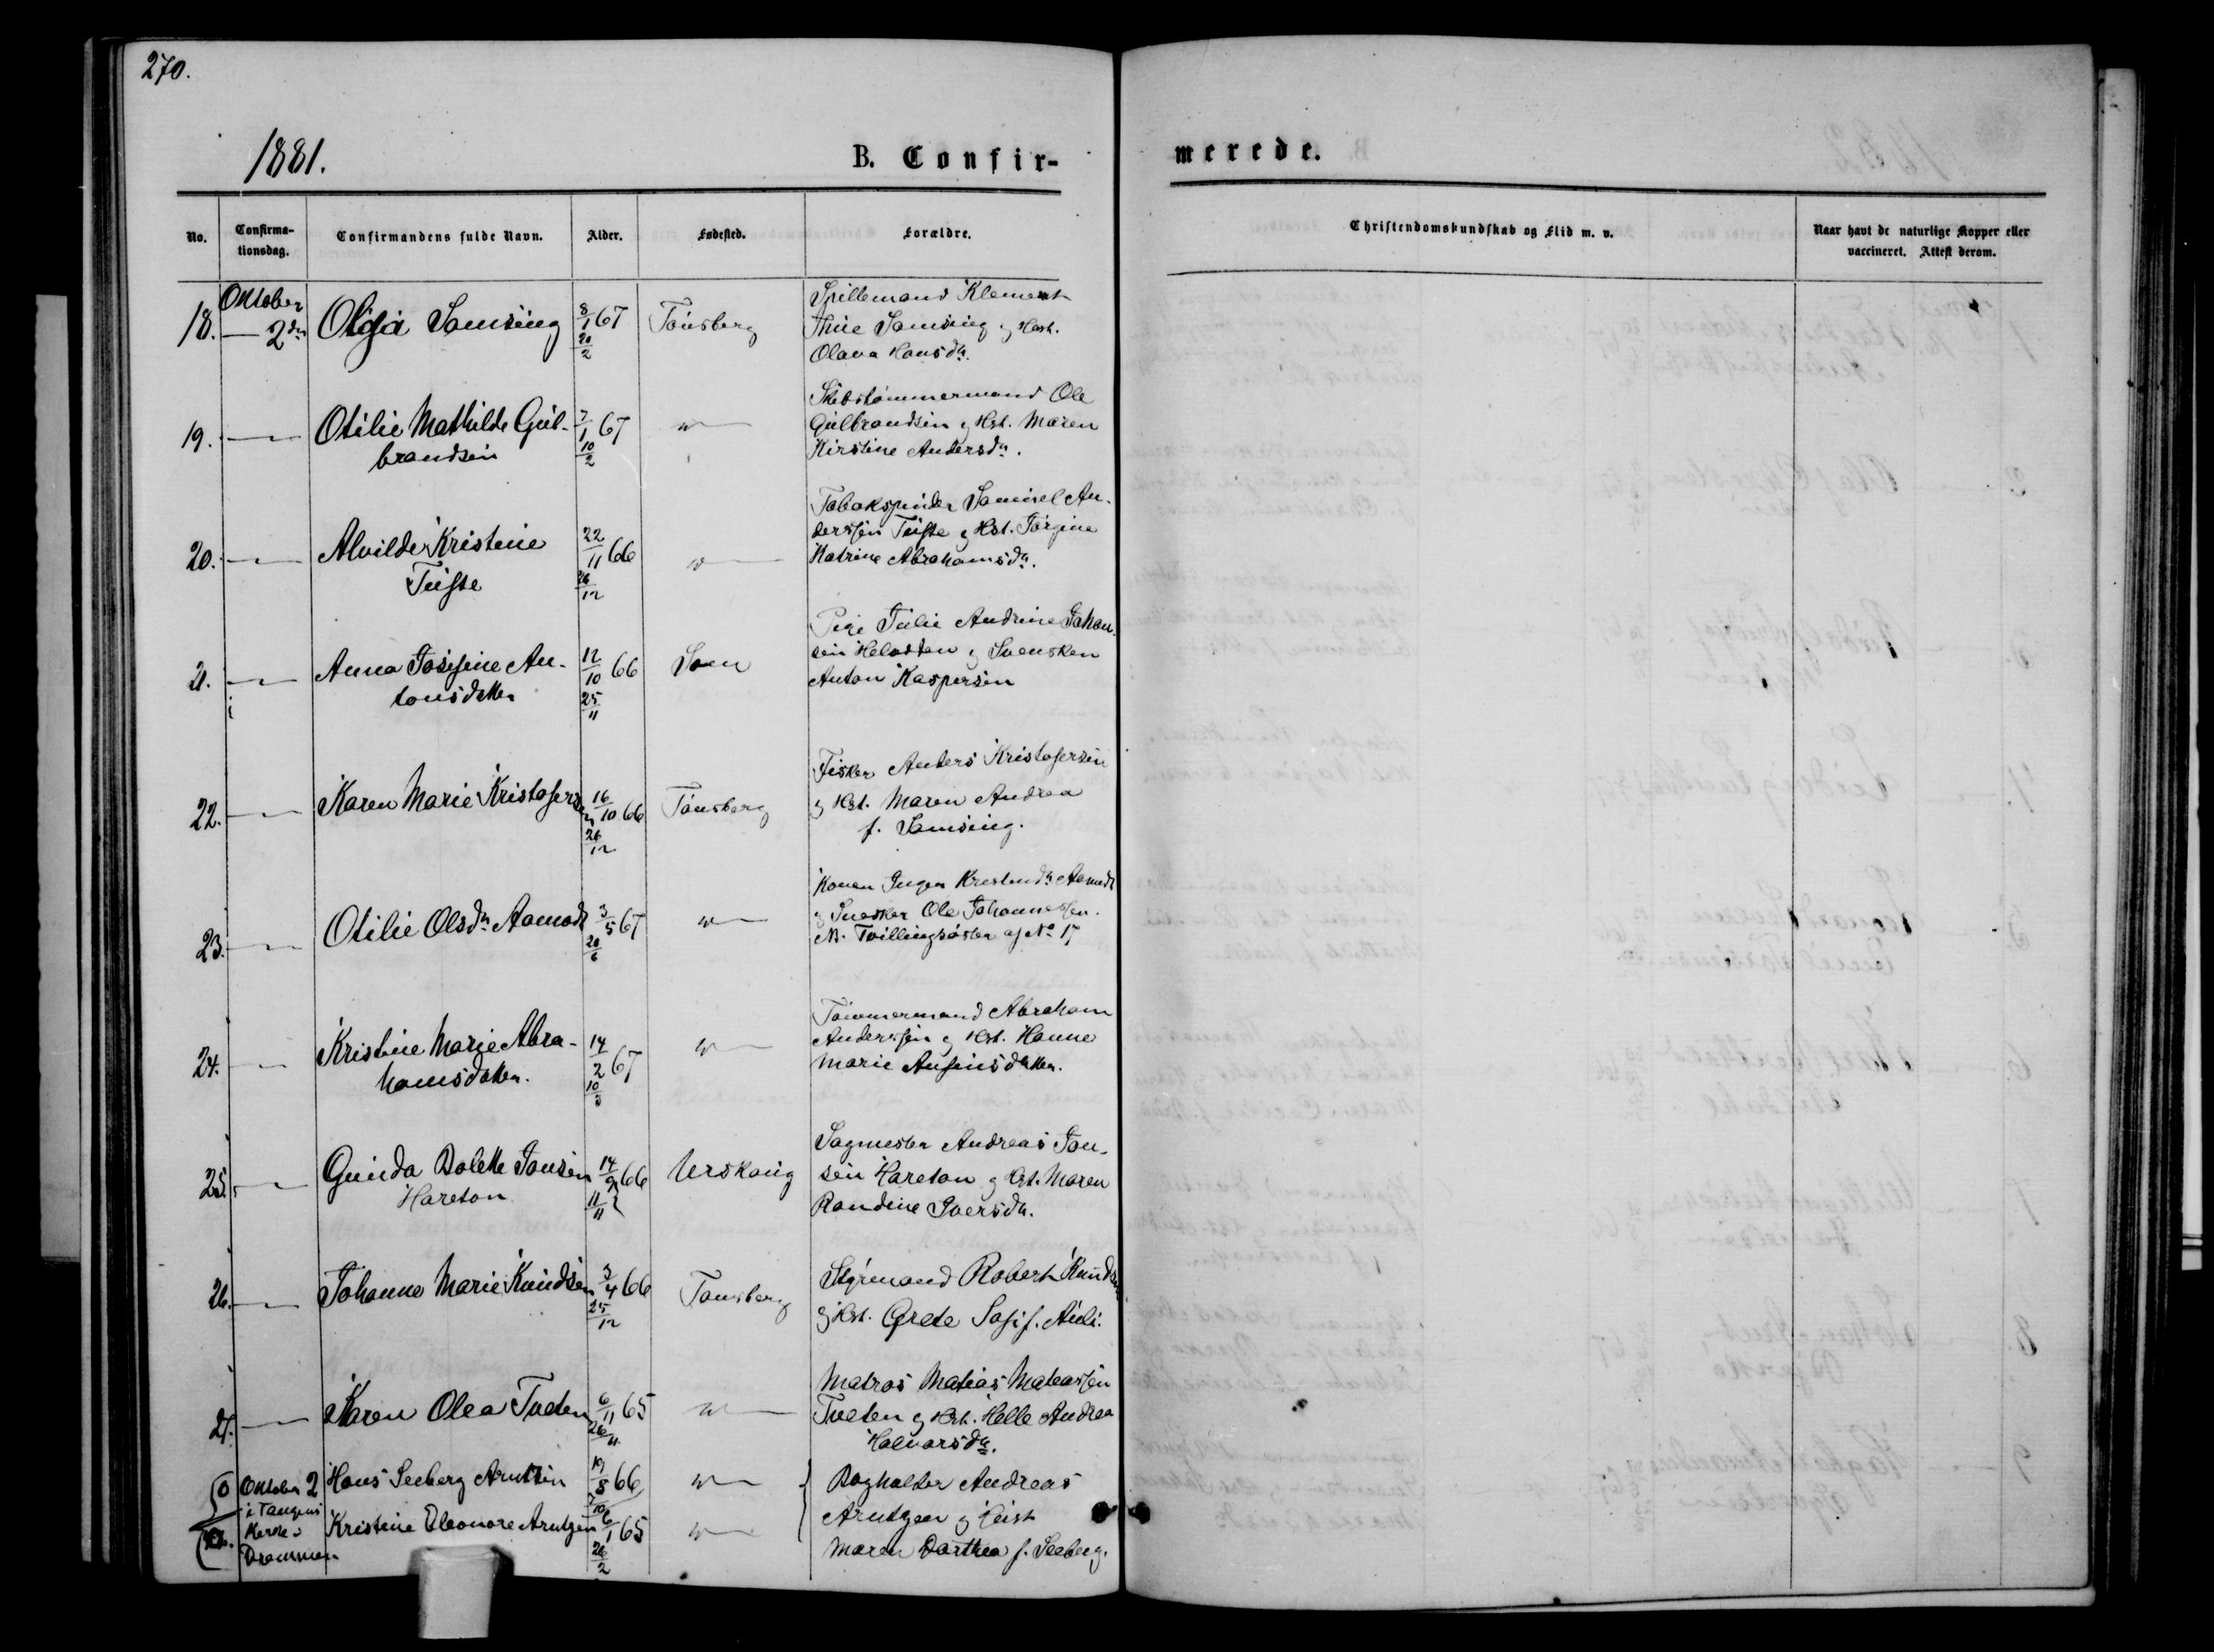 270.
1881.
B. Confir-
merede.
No.
Confirma-
tionsdag.
Confirmandens fulde Navn.
Alder.
Fødested.
Forældre.
Christendomskundskab og Flid m. v.
Naar havt de naturlige Kopper eller
vaccineret. Attest derom.
Oktober
18. — 2den Olga Samsing 8/1 67 Tönsberg
20/2
Spillemand Klement
Thue Samsing og Hust.
Olava Hansdr.
19. — Otilie Mathilde Gul-
brandsen
7/1 67
10/2
"
Skibstömmermand Ole
Gulbrandsen og Hst. Maren
Kirstine Andersdr.
20. — Alvilde Kristine
Tufte
22/11 66
26/12
"
Tobakspinder Samuel An-
derssen Tufte og Hst. Jörgine
Katrine Abrahamsdr.
21. — Anna Josefine An-
tonsdatter
12/10 66
25/11
Sem
Pige Julie Andrine Johan-
sen og Svensken
Anton Kaspersen
22. — Karen Marie Kristofersen
16/10 66
26/12
Tönsberg
Fisker Anders Kristofersen
og Hst. Maren Andrea
f. Samsing.
23. — Otilie Olsdr. Aamodt
3/5 67
20/6
"
Konen Inger Aamodt
og Snedker Ole Johannessen.
NB. Tvillingsöster af No 17
24. — Kristine Marie Abra-
hamsdatter.
14/2 67
10/3
"
Tömmermand Abraham
Anderssen og Hst. Hanne
Marie
25. — Gunda Bolette Jonsen
Hareton
14/9 66
11/11
Urskoug
Sagmester Andreas Jon-
sen Hareton og Hst. Maren
Randine Iversdr.
26. — Johanne Marie Knudsen
3/4 66
25/12
Tönsberg
Styrmand Robert Knudsen
og Hst. Grete Sofi f. Auli.
27. — Karen Olea Tveten
6/11 65
26/11
"
Matros Matias Mateassen
Tveten og Hst. Helle Andrea
Halvorsdr.
0 Oktober 2
i Tangens
Kirke i
Drammen
Hans Seeberg Arntzen
66
"
Kristine Eleonore Arntzen
6/1 65
26/2
"
Andreas
Arntzen og Hust
Maren Dorthea f. Seeberg.